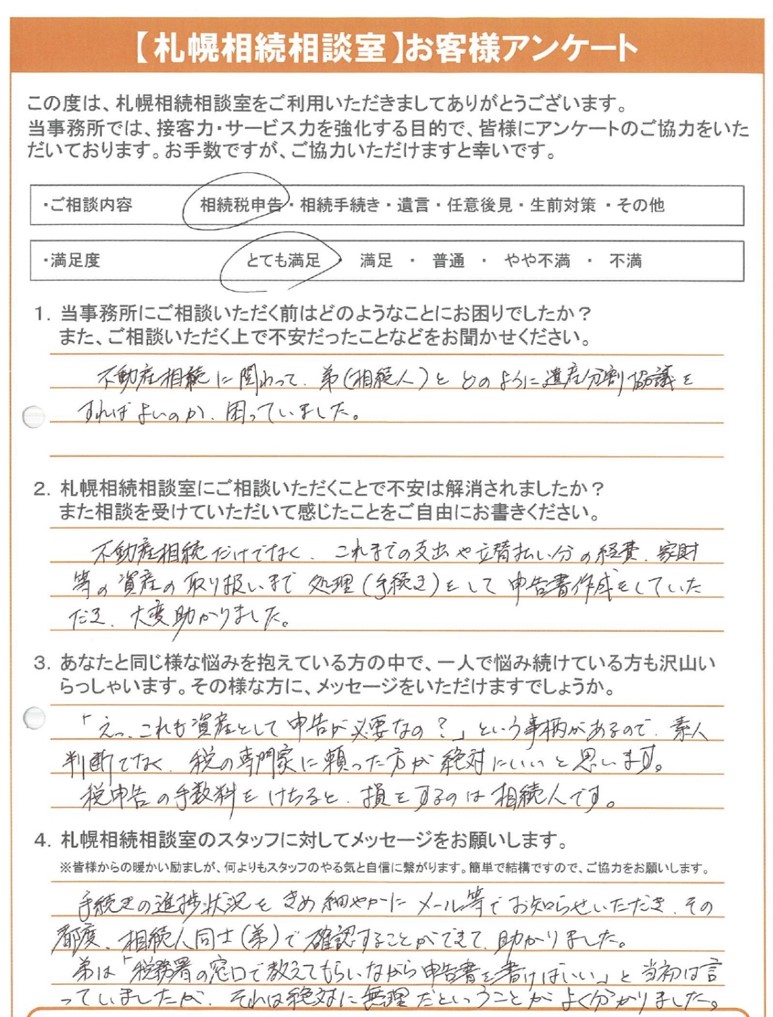 【札幌相続相談室】お客様アンケート
この度は、札幌相続相談室をご利用いただきましてありがとうございます。
当事務所では、接客力・サービス力を強化する目的で、皆様にアンケートのご協力をいた
だいております。お手数ですが、ご協力いただけますと幸いです。
・ご相談内容 相続税申告・相続手続き・遺言・任意後見・生前対策・その他
・満足度 とても満足 ・ 満足 ・ 普通 ・ やや不満 ・ 不満
1. 当事務所にご相談いただく前はどのようなことにお困りでしたか?
また、ご相談いただく上で不安だったことなどをお聞かせください。
不動産相続に関わって、弟(相続人)とどのように遺産分割協議を
すればよいのか、困っていました。
2. 札幌相続相談室にご相談いただくことで不安は解消されましたか?
また相談を受けていただいて感じたことをご自由にお書きください。
不動産相続だけでなく、これまでの支出や立替払い分の経費、家財
等の資産の取り扱いまで処理(手続き)をして申告書作成をしていた
だき、大変助かりました。
3. あなたと同じ様な悩みを抱えている方の中で、一人で悩み続けている方も沢山い
らっしゃいます。その様な方に、メッセージをいただけますでしょうか。
「えっ、これも資産として申告が必要なの?」という事柄があるので、素人
判断でなく、税の専門家に頼った方が絶対にいいと思います。
税申告の手数料をけちると、損をするのは相続人です。
4. 札幌相続相談室のスタッフに対してメッセージをお願いします。
※皆様からの暖かい励ましが、何よりもスタッフのやる気と自信に繋がります。簡単で結構ですので、ご協力をお願いします。
手続きの進捗状況をきめ細やかにメール等でお知らせいただき、その
都度、相続人同士(弟)で確認することができて、助かりました。
弟は「税務署の窓口で教えてもらいながら申告書を書けばいい」と当初は言
っていましたが、それは絶対に無理だということがよく分かりました。